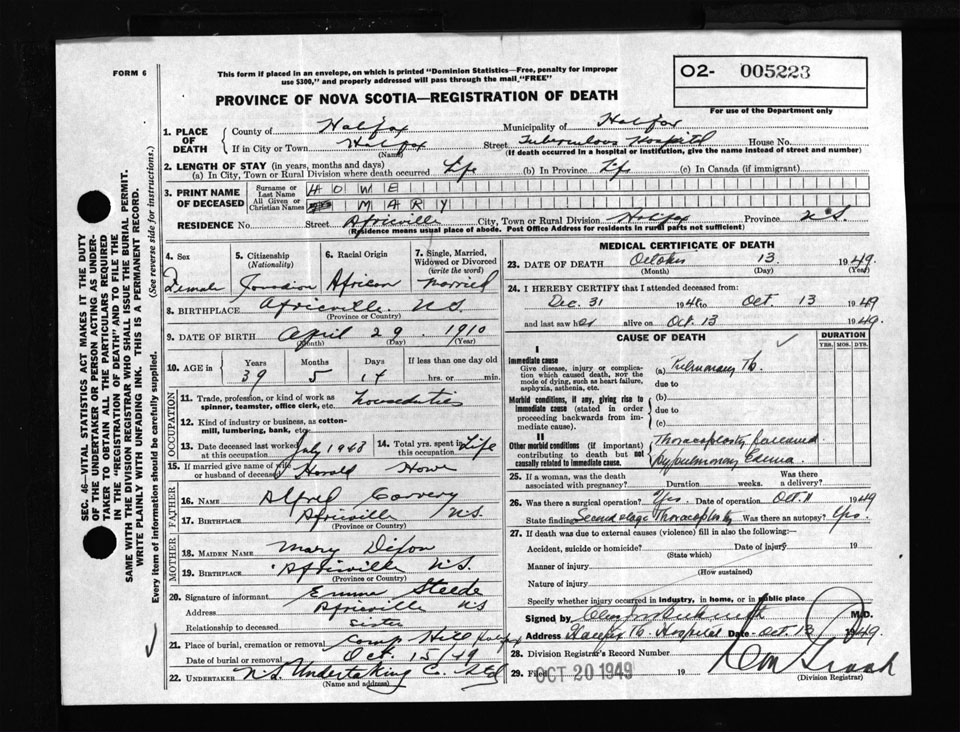 FORM 6
This form if placed in an envelope, on which is printed "Dominion Statistics—Free, penalty for improper
use $300," and properly addressed will pass through the mail, "FREE"
O2- 005223
For use of the Department only
PROVINCE OF NOVA SCOTIA—REGISTRATION OF DEATH
SEC. 46—VITAL STATISTICS ACT MAKES IT THE DUTY
OF THE UNDERTAKER OR PERSON ACTING AS UNDER-
TAKER TO OBTAIN ALL THE PARTICULARS REQUIRED
IN THE "REGISTRATION OF DEATH" AND TO FILE THE
SAME WITH THE DIVISION REGISTRAR WHO SHALL ISSUE THE BURIAL PERMIT.
WRITE PLAINLY WITH UNFADING INK. THIS IS A PERMANENT RECORD.
Every item of information should be carefully supplied. (See reverse side for instructions.)
1. PLACE OF DEATH { County of Halifax Municipality of Halifax
If in City or Town Halifax Street Tuberculous Hospital House No.
(Name) (If death occurred in a hospital or institution, give the name instead of street and number)
2. LENGTH OF STAY (in years, months and days)
(a) In City, Town or Rural Division where death occurred Life (b) In Province Life (c) In Canada (if immigrant)
3. PRINT NAME OF DECEASED { Surname or Last Name HOWE
All Given or Christian Names MARY
RESIDENCE No. Street Africville City, Town or Rural Division Halifax Province N.S.
(Residence means usual place of abode. Post Office Address for residents in rural parts not sufficient)
4. Sex 5. Citizenship (Nationality) 6. Racial Origin 7. Single, Married, Widowed or Divorced (write the word)
Female Canadian African Married
8. BIRTHPLACE Africville N.S.
(Province or Country)
9. DATE OF BIRTH April 29 1910
(Month) (Day) (Year)
10. AGE in { Years Months Days If less than one day old
39 5 14 hrs. or min.
OCCUPATION
11. Trade, profession, or kind of work as
spinner, teamster, office clerk, etc. houseduties
12. Kind of industry or business, as cotton-
mill, lumbering, bank, etc.
13. Date deceased last worked at this occupation July 1948 14. Total yrs. spent in this occupation Life
15. If married give name of wife or husband of deceased Harold Howe
FATHER
16. NAME Alfred Carvery
17. BIRTHPLACE Africville N.S.
(Province or Country)
MOTHER
18. MAIDEN NAME Mary Dixon
19. BIRTHPLACE Africville N.S.
(Province or Country)
20. Signature of informant Emma Steede
Address Africville N.S
Relationship to deceased sister
21. Place of burial, cremation or removal Camp Hill Halifax
Date of burial or removal Oct. 15/49
22. UNDERTAKER N.S. Undertaking Co. Ltd
(Name and address)
MEDICAL CERTIFICATE OF DEATH
23. DATE OF DEATH October 13 1949.
(Month) (Day) (Year)
24. I HEREBY CERTIFY that I attended deceased from:
Dec. 31 1948 to Oct. 13 1949
and last saw her alive on Oct. 13 1949.
CAUSE OF DEATH DURATION
YRS. MOS. DYS.
I
Immediate cause
Give disease, injury or complica-
tion which caused death, not the
mode of dying, such as heart failure,
asphyxia, asthenia, etc.
(a) Pulmonary Tb.
due to
Morbid conditions, if any, giving rise to
immediate cause (stated in order
proceeding backwards from im-
mediate cause).
(b)
due to
(c)
II
Other morbid conditions (if important)
contributing to death but not
causally related to immediate cause.
Thoracoplasty followed
by pulmonary Edema
25. If a woman, was the death associated with pregnancy? Duration weeks. Was there a delivery?
26. Was there a surgical operation? Yes. Date of operation Oct. 11 1949
State finding Second stage Thoracoplasty Was there an autopsy? Yes.
27. If death was due to external causes (violence) fill in also the following:
Accident, suicide or homicide? Date of injury 19
(State which)
Manner of injury
(How sustained)
Nature of injury
Specify whether injury occurred in industry, in home, or in public place
Signed by M.D.
Address Halifax Tb. Hospital Date Oct. 13 1949.
28. Division Registrar's Record Number
29. Filed OCT 20 1949 19
(Division Registrar)